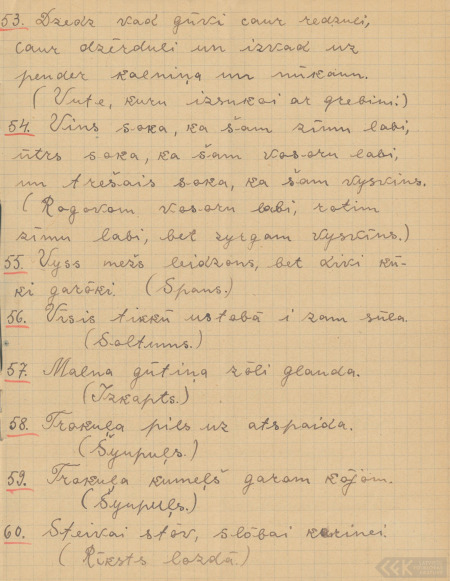 53. Dzedz kad gūvi caur redzuli,
caur dzērduli un izvad uz
pender kalniņa un nūkaun.
(Vute, kuru izsukoi ar grebini.)
54. Vīns soka, ka šam zīmu labi,
ūtrs soka, ka šam vosoru labi,
un trešais soka, ka šam vysvīns.
(Rogovom vosoru labi, rotim
zīmu labi, bet zyrgam vysvīns.)
55. Vyss mežs leidzons, bet divi kū-
ki garōki. (Spans.)
56. Visis tikkū ustobā i zam sūla.
(Soltums.)
57. Malna gūtiņa zōli glauda.
(Izkapts.)
58. Trokuļa pils uz atspaida.
(Šyupuļs.)
59. Trokuļa kumeļš garom kōjom.
(Šyupuļs.)
60. Steivai stōv, slōbai karinei.
(Rīksts lozdā.)